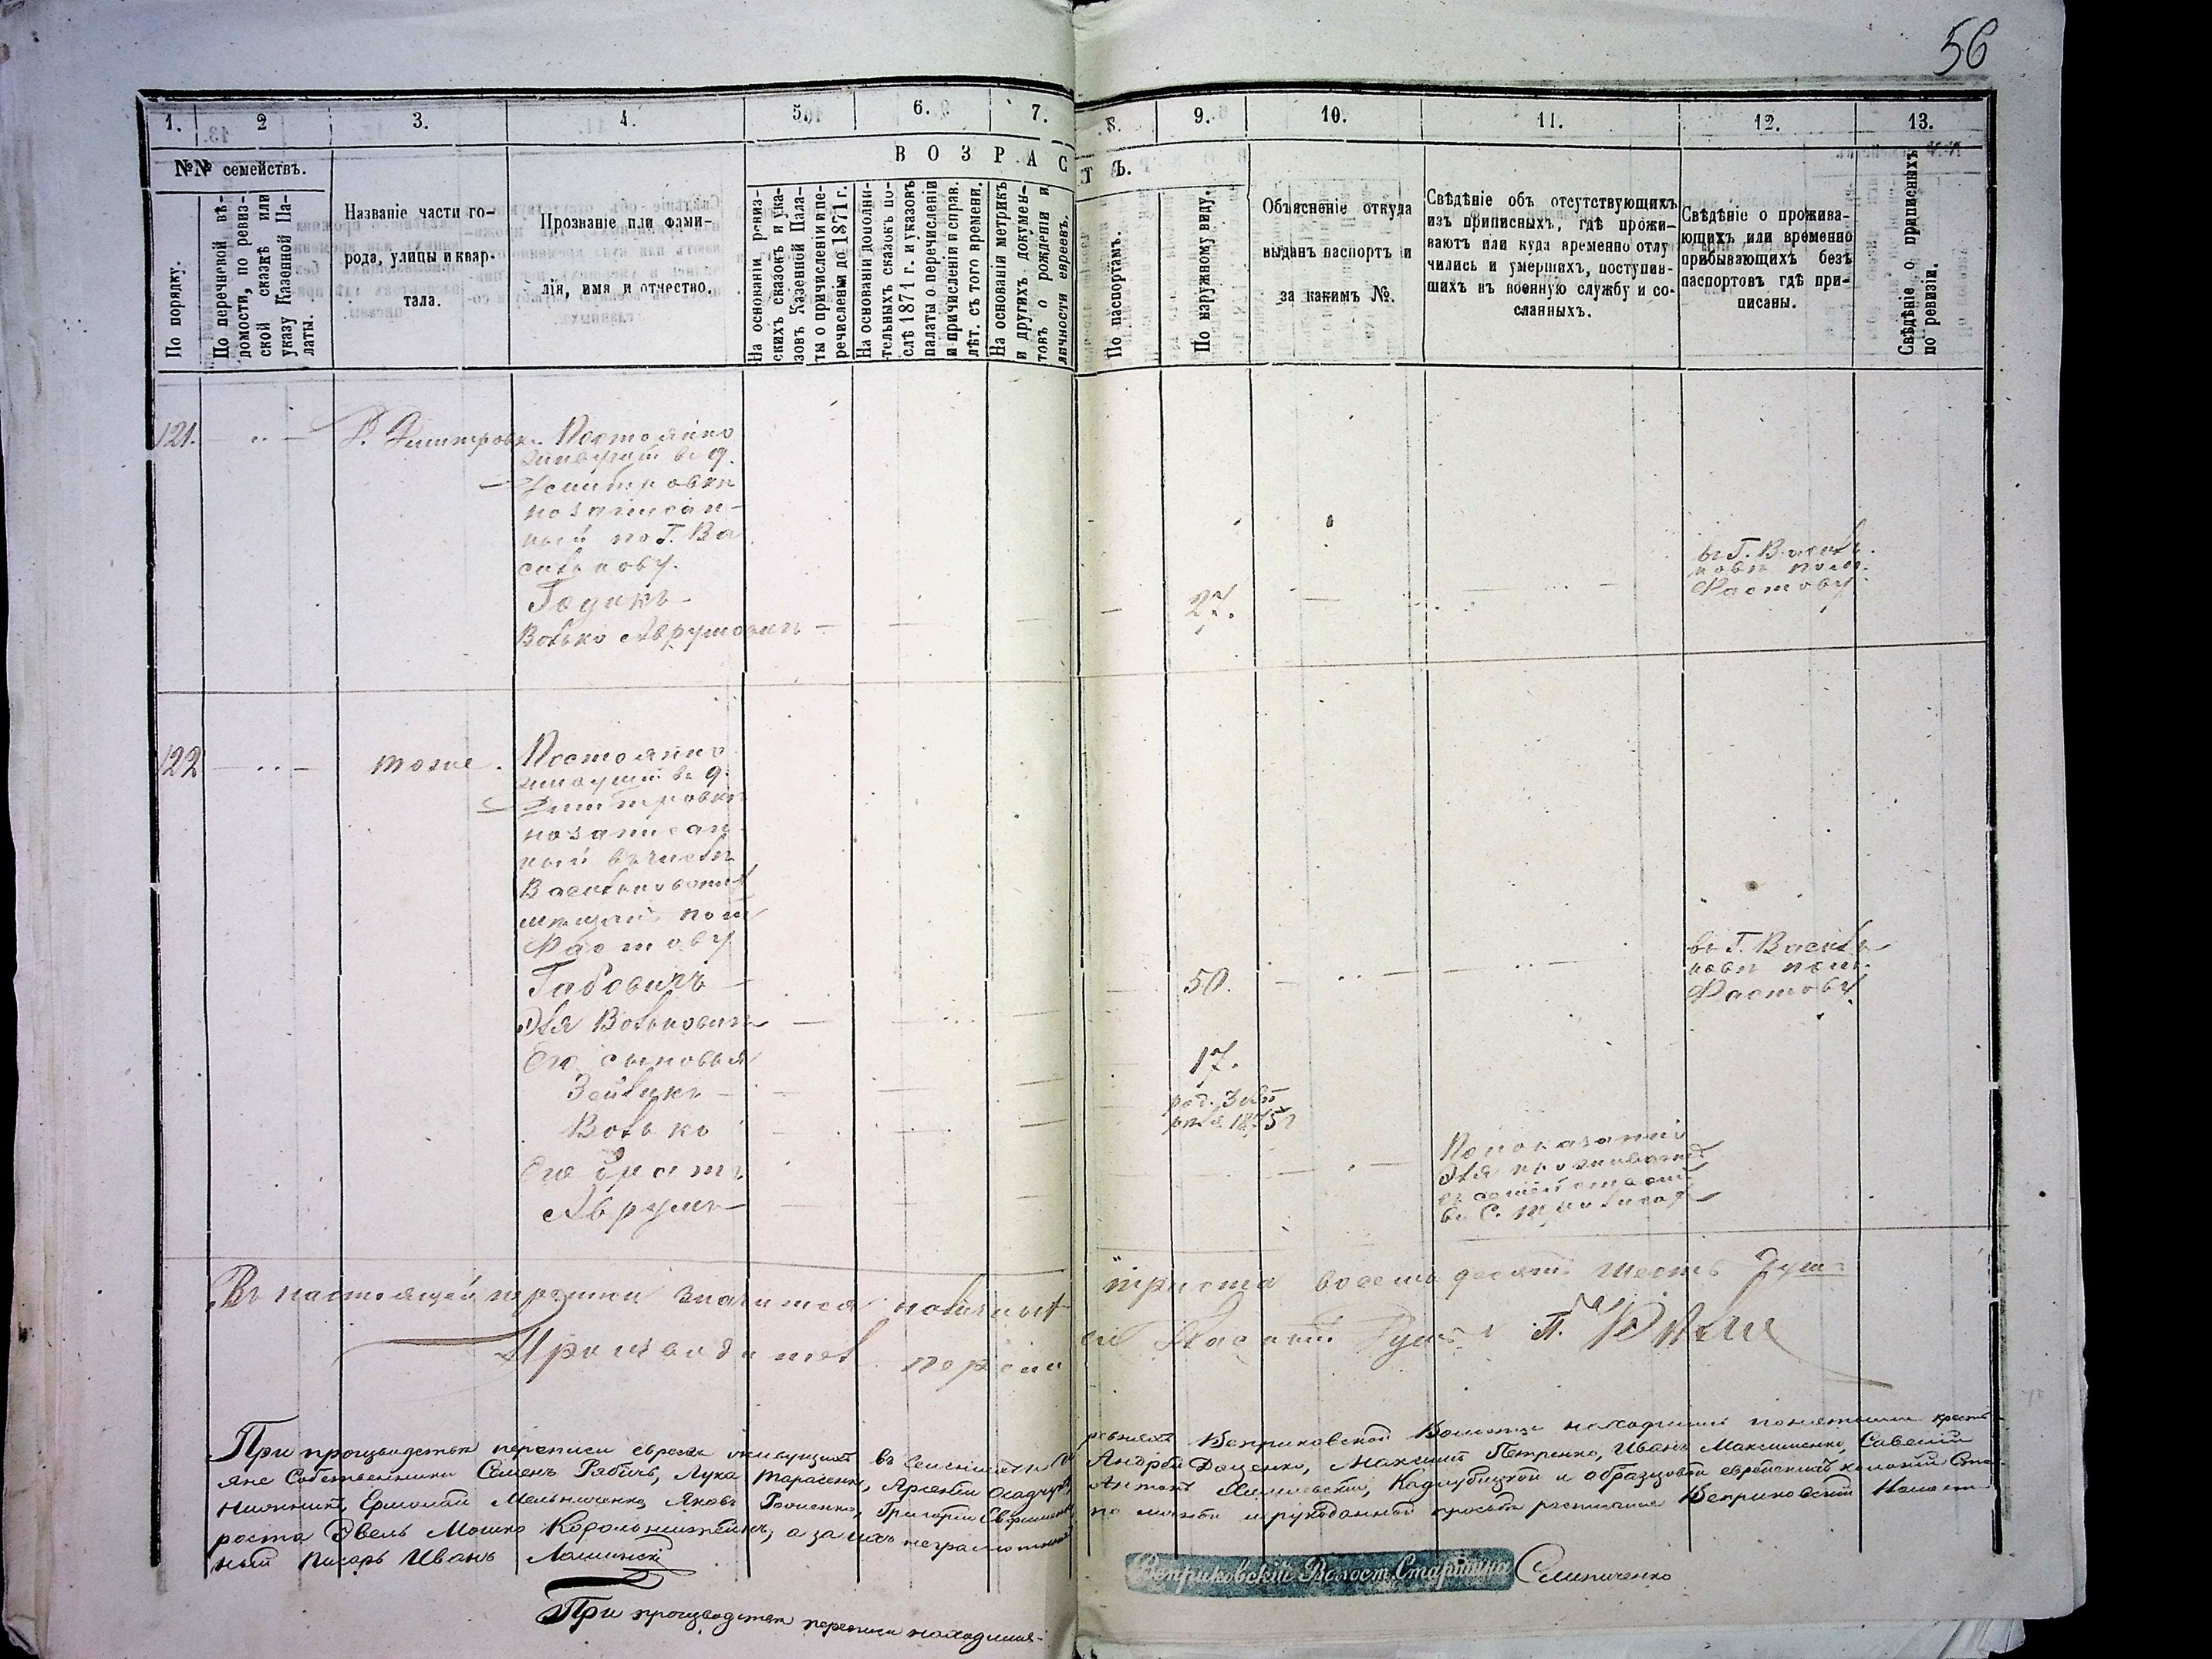 56
1. 2 3. 4. 5. 6. 7. 8. 9. 10. 11. 12. 13.
№№ семействъ.
ВОЗРАСТЪ.
По порядку.
По перечневой вѣ-
домости, по ревиз-
ской сказкѣ или
указу Казенной Па-
латы.
Названіе части го-
рода, улицы и квар-
тала.
Прозваніе или фами-
лія, имя и отчество.
На основаніи ревиз-
скихъ сказокъ и ука-
зовъ Казенной Пала-
ты о причисленіи и пе-
речисленіи до 1871 г.
На основаніи дополни-
тельныхъ сказокъ по-
слѣ 1871 г. и указовъ
палаты о перечисленіи
и причисленіи и справ.
лѣт. съ того времени.
На основаніи метрикъ
и другихъ докумен-
товъ о рожденіи и
личности евреевъ.
По паспортамъ.
По наружному виду.
Объясненіе откуда
выданъ паспортъ и
за какимъ №.
Свѣдѣніе объ отсутствующихъ
изъ приписныхъ, гдѣ прожи-
ваютъ или куда временно отлу
чились и умершихъ, поступив-
шихъ въ военную службу и со-
сланныхъ.
Свѣдѣніе о прожива-
ющихъ или временно
прибывающихъ безъ
паспортовъ гдѣ при-
писаны.
Свѣдѣніе о приписныхъ
по ревизіи.
121. Д. Дмитровка. Постоянно
живущій въ д.
Дмитровки
но записан-
ный по Г. Ва
силькову.
Годикъ
Волько Аврумовичъ 27.
въ Г. Василь
ковѣ по м.
Фастову
122 тоже. Постоянно
живущій въ д.
Дмитровки
но записан
ный въ числѣ
Васильковскихъ
мѣщанъ по м
Фастову
Габовичъ 50.
Эля Вольковичъ
въ Г. Василь
ковѣ по м.
Фастову
Его сыновья
Зейликъ 17.
Волько
1875 г
Его братъ
Аврумъ
По показанію
Эля проживаетъ
въ С.
Въ настоящей переписи значится наличныхъ триста восемьдесятъ шесть душъ
Производилъ перепись
При производствѣ переписи евреевъ живущихъ въ селеніяхъ и деревняхъ Веприковской Волости находились понятыми кресть-
яне Собственники Семенъ Рябичъ, Лука Тарасенко, Арсентій Осадчукъ, Андрей Доценко, Максимъ Петренко, Иванъ Максименко, Савелій
Ермолай Мельниченко, Яковъ Григорій Антонъ Кадлубицкой и образцовой еврейскихъ колоній Ста-
роста Эвель Мошко а за ихъ неграмотныхъ по личной и рукоданной просьбѣ росписался Веприковскій Волост-
ный писарь Иванъ
Веприковскій Волост. Старшина
При производствѣ переписи находился